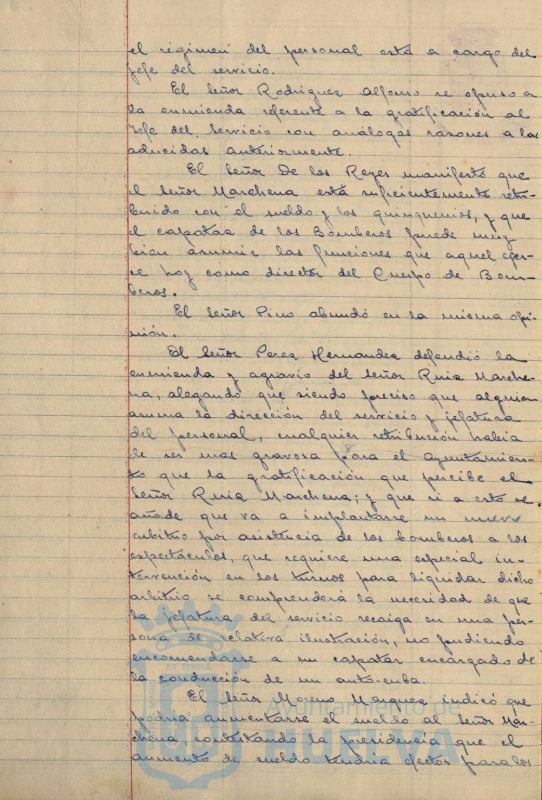 el régimen del personal está a cargo del
jefe del servicio.
El Señor Rodriguez Alfonso se opuso a
la enmienda referente a la gratificación al
Jefe del Servicio con análogas razones a las
aducidas anteriormente.
El Señor De los Reyes manifestó que
el Señor Marchena está suficientemente retri-
buido con el sueldo y los quinquenios, y que
el capataz de los Bomberos puede muy
bien asumir las funciones que aquel ejer-
ce hoy como director del Cuerpo de Bom-
beros.
El Señor Pino abundó en la misma opi-
nión.
El Señor Perez Hernandez defendió la
enmienda y agravio del Señor Ruiz Marche-
na, alegando que siendo preciso que alguien
asuma la dirección del servicio y jefatura
del personal, cualquier retribución habia
de ser mas gravosa para el Ayuntamien-
to que la gratificación que percibe el
Señor Ruiz Marchena; y que si a esto se
añade que va a implantarse un nuevo
arbitrio por asistencia de los bomberos a los
espectáculos, que requiere una especial in-
tervención en los turnos para liquidar dicho
arbitrio se comprenderá la necesidad de que
la jefatura del servicio recaiga en una per-
sona de relativa ilustración, no pudiendo
encomendarse a un capataz encargado de
la conducción de un auto-cuba.
El Señor Moreno Marquez indicó que
podria aumentarse el sueldo al Señor Mar-
chena, contestando la presidencia que el
aumento de sueldo tendria efectos para los
Ayuntamiento de
HUELVA